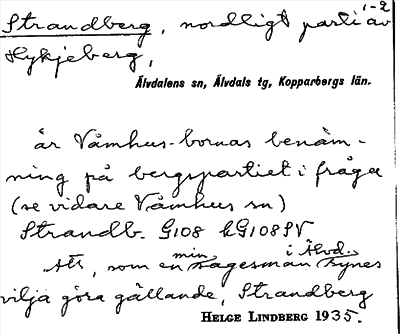 1-2
Strandberg, nordligt parti av
Hykjeberg,
Älvdalens sn, Älvdals tg, Kopparbergs län.
är Våmhus-bornas benäm-
ning på bergspartiet i fråga
(se vidare Våmhus sn)
Strandb. G108 kG108SV
Att, som en min sagesman i Älvd. synes
vilja göra gällande, Strandberg
HELGE LINDBERG 1935.